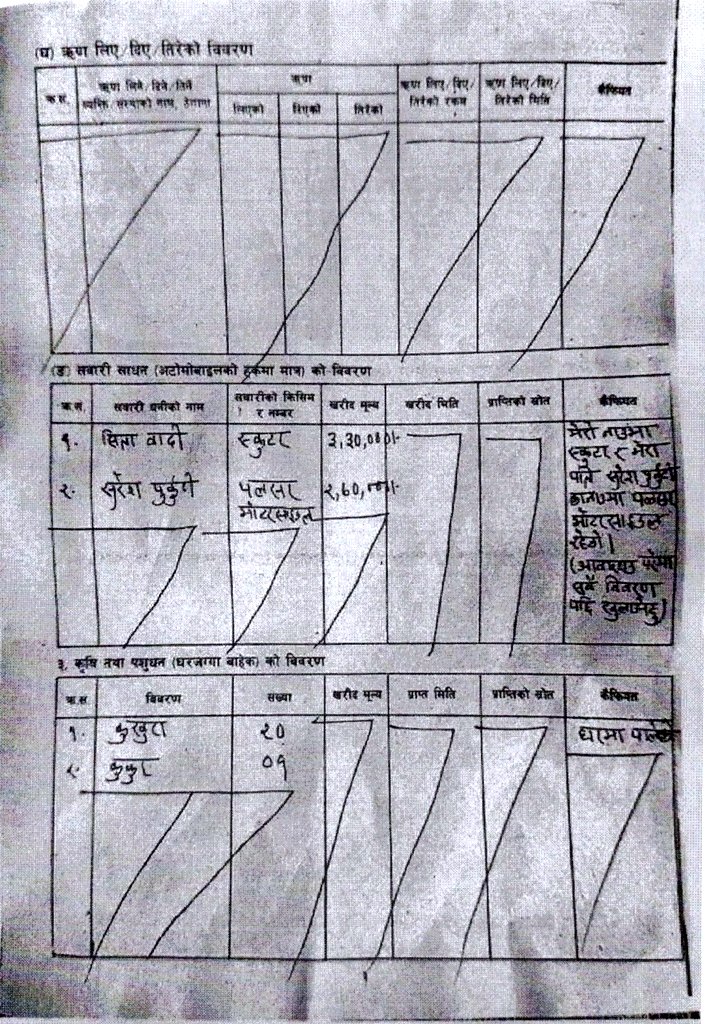 (घ) ऋण लिए/दिए/तिरेको विवरण
क्र.स.
ऋण लिने/दिने/तिर्ने
व्यक्ति/संस्थाको नाम, ठेगाना
ऋण
लिएको
दिएको
तिरेको
ऋण लिए/दिए/
तिरेको रकम
ऋण लिए/दिए/
तिरेको मिति
कैफियत
(ङ) सवारी साधन (अटोमोबाइलको हकमा मात्र) को विवरण
क्र.स.
सवारी धनीको नाम
सवारीको किसिम
र नम्बर
खरीद मूल्य
खरीद मिति
प्राप्तिको स्रोत
कैफियत
१. वादी स्कुटर ३,३०,०००।-
२. सुरेश पलसर २,६०,०००।-
मोटरसाइकल
मेरो नाउमा
स्कुटर र मेरा
पति सुरेश
पलसर
मोटरसाइकल
रहेको।
(आवश्यक परेमा
सबै विवरण
पछि खुलाउनेछु)
३. कृषि तथा पशुधन (घरजग्गा बाहेक) को विवरण
क्र.स.
विवरण
सख्या
खरीद मूल्य
प्राप्त मिति
प्राप्तिको स्रोत
कैफियत
१. कुखुरा २० घरमा पालेको
२. कुकुर ०१